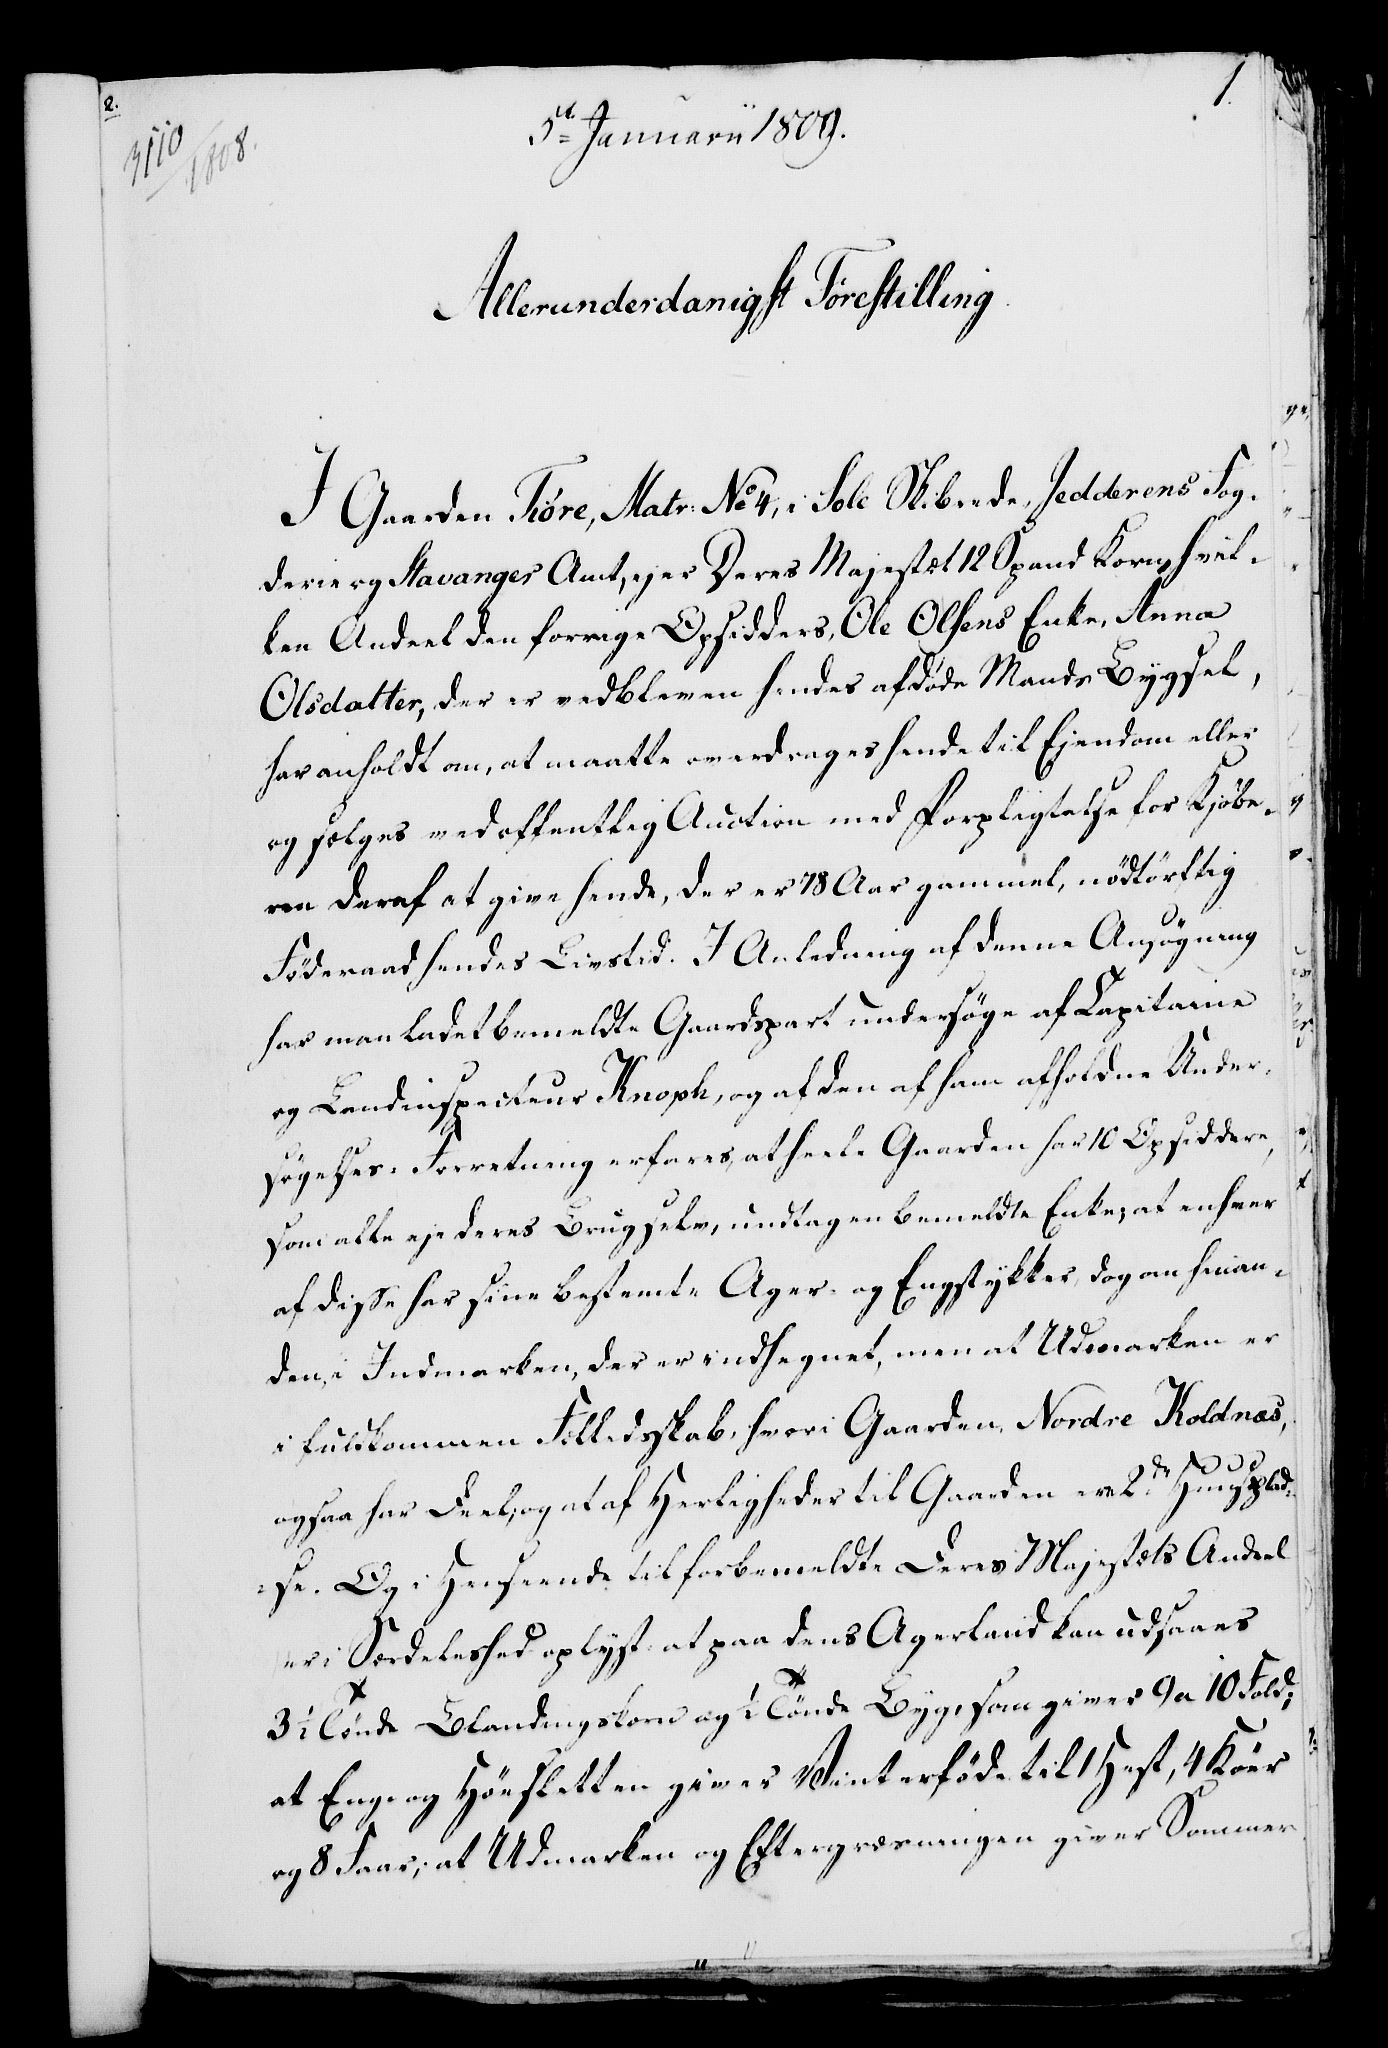 2.
1.
3110/1808.
5te Januarii 1809.
Allerunderdanigst Førestilling
I Gaarden Tiöre, Matr: No 4, i Sole Skibrede, Jedderens Fog-
derie og Stavanger Amt, ejer Deres Majestæt 12 Spand Korn, hvil-
ken Andeel den forrige Opsidders, Ole Olsens Enke, Anna
Olsdatter, der er vedbleven hendes afdöde Mands Bygsel,
har anholdt om, at maatte overdrages hende til Ejendom eller
og sælges ved offentlig Auction med Forpligtelse for Kjöbe-
ren deraf at give hende, der er 78 Aar gammel, nödtörftig
Föderaad hendes Livstid. I Anledning af denne Ansögning
har man ladet bemeldte Gaardspart undersöge af Capitaine
og Landinspecteur Knoph, og af den af ham afholdne Under-
sögelses-Forretning erfares, at heele Gaarden har 10 Opsiddere,
som alle eje deres Brug selv, undtagen bemeldte Enke; at enhver
af disse har sine bestemte Ager- og Engstykker, dog om hinan-
den, i Indmarken, der er indhegnet, men at Udmarken er
i fuldkommen Fælledsskab, hvori Gaarden, Nordre Koldnæs,
ogsaa har Deel; og at af Herligheder til Gaarden ere 2de Huusplad-
se. Og i Henseende til forbemeldte Deres Majestæts Andeel
er i Særdeleshed oplyst: at paa dens Agerland kan udsaaes
3½ Tönde Blandingskorn og ½ Tönde Byg, som giver 9 a 10 Fold;
at Eng- og Höesletten giver Vinterföde til 1 Hest, 4 Köer
og 8 Faar; at Udmarken og Eftergræsningen giver Sommer